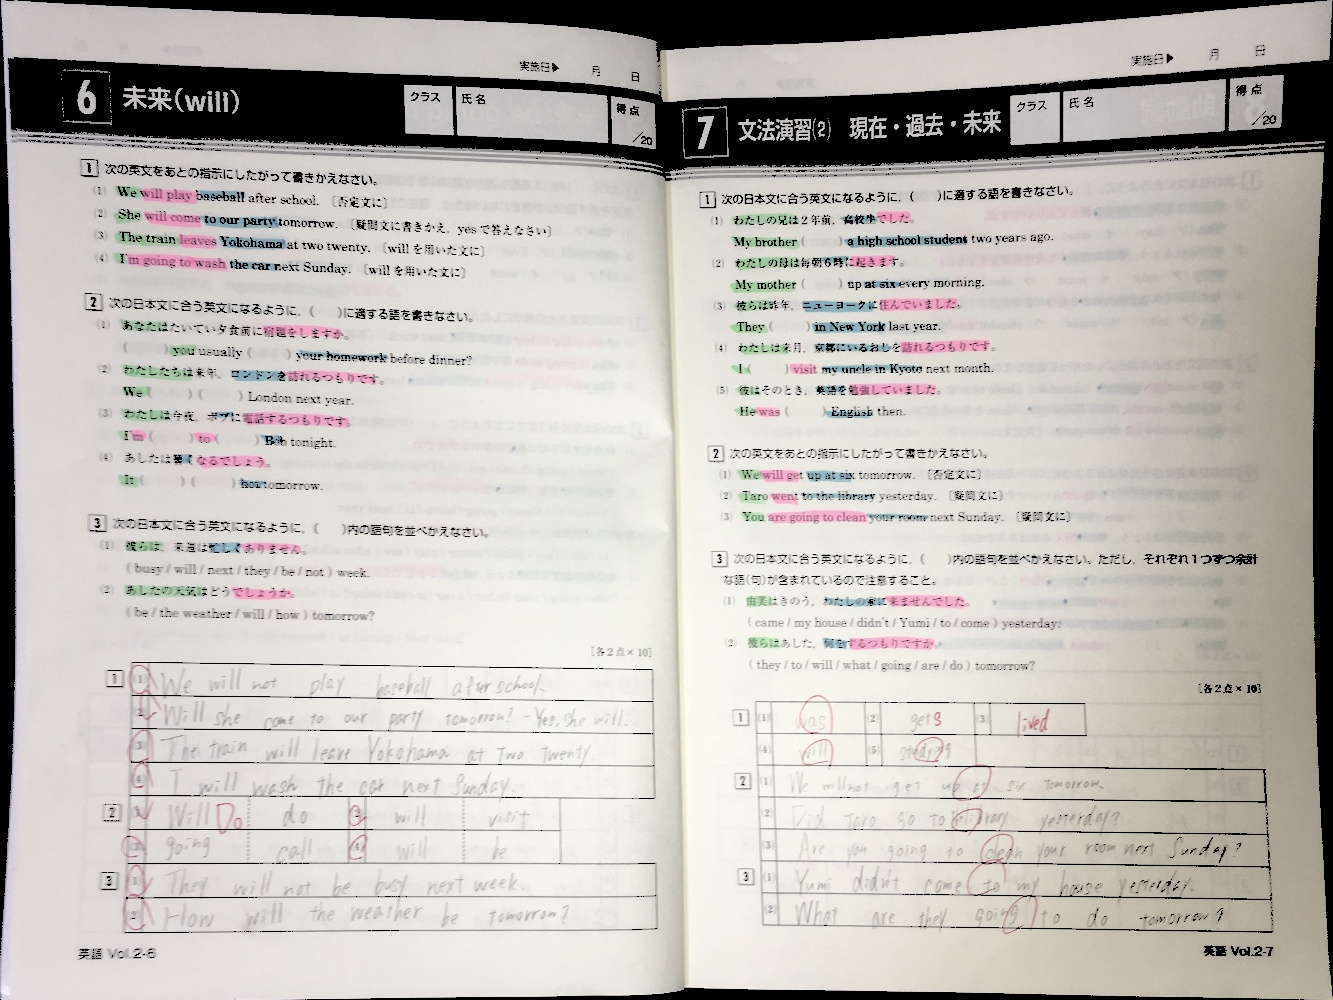 実施日▶ 月 日
6 未来(will)
クラス 氏名 得点 /20
1 次の英文をあとの指示にしたがって書きかえなさい。
(1) We will play baseball after school. 〔否定文に〕
(2) She will come to our party tomorrow. 〔疑問文に書きかえ，yesで答えなさい〕
(3) The train leaves Yokohama at two twenty. 〔willを用いた文に〕
(4) I'm going to wash the car next Sunday. 〔willを用いた文に〕
2 次の日本文に合う英文になるように，( )に適する語を書きなさい。
(1) あなたはたいてい夕食前に宿題をしますか。
( ) you usually ( ) your homework before dinner?
(2) わたしたちは来年，ロンドンを訪れるつもりです。
We ( ) ( ) London next year.
(3) わたしは今夜，ボブに電話するつもりです。
I'm ( ) to ( ) Bob tonight.
(4) あしたは暑くなるでしょう。
It ( ) ( ) hot tomorrow.
3 次の日本文に合う英文になるように，( )内の語句を並べかえなさい。
(1) 彼らは，来週は忙しくありません。
( busy / will / next / they / be / not ) week.
(2) あしたの天気はどうでしょうか。
( be / the weather / will / how ) tomorrow?
[各2点×10]
1 (1) We will not play baseball after school.
(2) Will she come to our party tomorrow? - Yes, she will.
(3) The train will leave Yokohama at two twenty.
(4) I will wash the car next Sunday.
2 (1) Will Do do (2) will visit
(3) going call (4) will be
3 (1) They will not be busy next week.
(2) How will the weather be tomorrow?
英語 Vol.2-6
実施日▶ 月 日
7 文法演習(2) 現在・過去・未来
クラス 氏名 得点 /20
1 次の日本文に合う英文になるように，( )に適する語を書きなさい。
(1) わたしの兄は2年前，高校生でした。
My brother ( ) a high school student two years ago.
(2) わたしの母は毎朝6時に起きます。
My mother ( ) up at six every morning.
(3) 彼らは昨年，ニューヨークに住んでいました。
They ( ) in New York last year.
(4) わたしは来月，京都にいるおじを訪れるつもりです。
I ( ) visit my uncle in Kyoto next month.
(5) 彼はそのとき，英語を勉強していました。
He was ( ) English then.
2 次の英文をあとの指示にしたがって書きかえなさい。
(1) We will get up at six tomorrow. 〔否定文に〕
(2) Taro went to the library yesterday. 〔疑問文に〕
(3) You are going to clean your room next Sunday. 〔疑問文に〕
3 次の日本文に合う英文になるように，( )内の語句を並べかえなさい。ただし，それぞれ1つずつ余計
な語(句)が含まれているので注意すること。
(1) 由美はきのう，わたしの家に来ませんでした。
( came / my house / didn't / Yumi / to / come ) yesterday.
(2) 彼らはあした，何をするつもりですか。
( they / to / will / what / going / are / do ) tomorrow?
[各2点×10]
1 (1) was (2) gets (3) lived
(4) will (5)
2 (1) We will not get up at six tomorrow.
(2) Did Taro go to library yesterday?
(3) Are you going to clean your room next Sunday?
3 (1) Yumi didn't came to my house yesterday.
(2) What are they going to do tomorrow?
英語 Vol.2-7